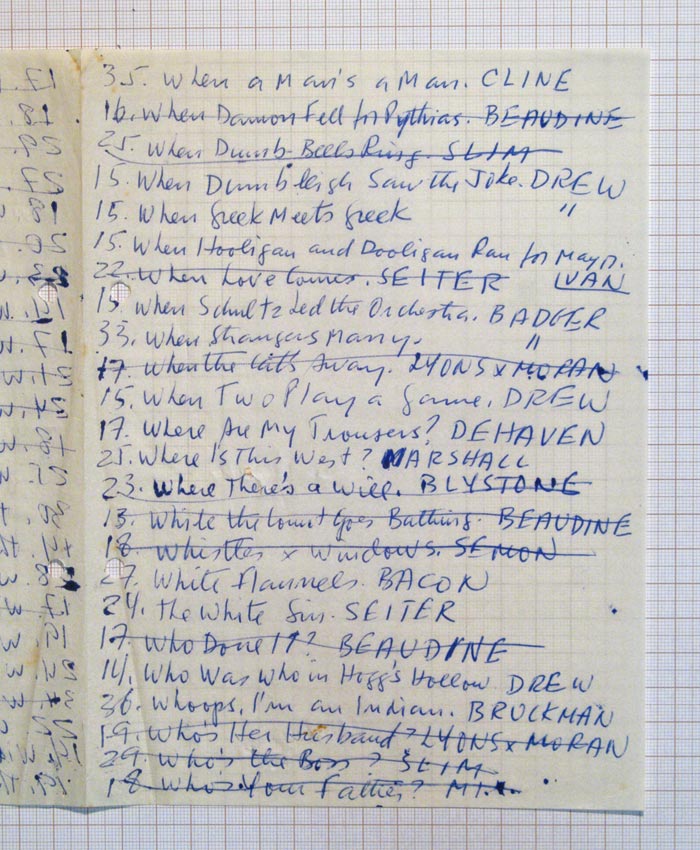 35. When a Man's a Man. CLINE
16. When Damon Fell for Pythias. BEAUDINE
25. When Dumb-Bells Ring. SLIM
15. When Dumbleigh Saw the Joke. DREW
15. When Greek Meets Greek "
15. When Hooligan and Dooligan Ran for Mayor.
22. When Love Comes. SEITER VAN
15. When Schultz Led the Orchestra. BADGER
33. When Strangers Marry. "
17. When the Cat's Away. LYONS x MORAN
15. When Two Play a Game. DREW
17. Where Are My Trousers? DEHAVEN
25. Where Is This West? MARSHALL
23. Where There's a Will. BLYSTONE
13. While the Count Goes Bathing. BEAUDINE
18. Whistles x Windows. SEMON
27. White Flannels. BACON
24. The White Sin. SEITER
17. Who Done It? BEAUDINE
14. Who Was Who in Hogg's Hollow. DREW
36. Whoops, I'm an Indian. BRUCKMAN
19. Who's Her Husband? LYONS x MORAN
29. Who's the Boss? SLIM
18. Who's Your Father?